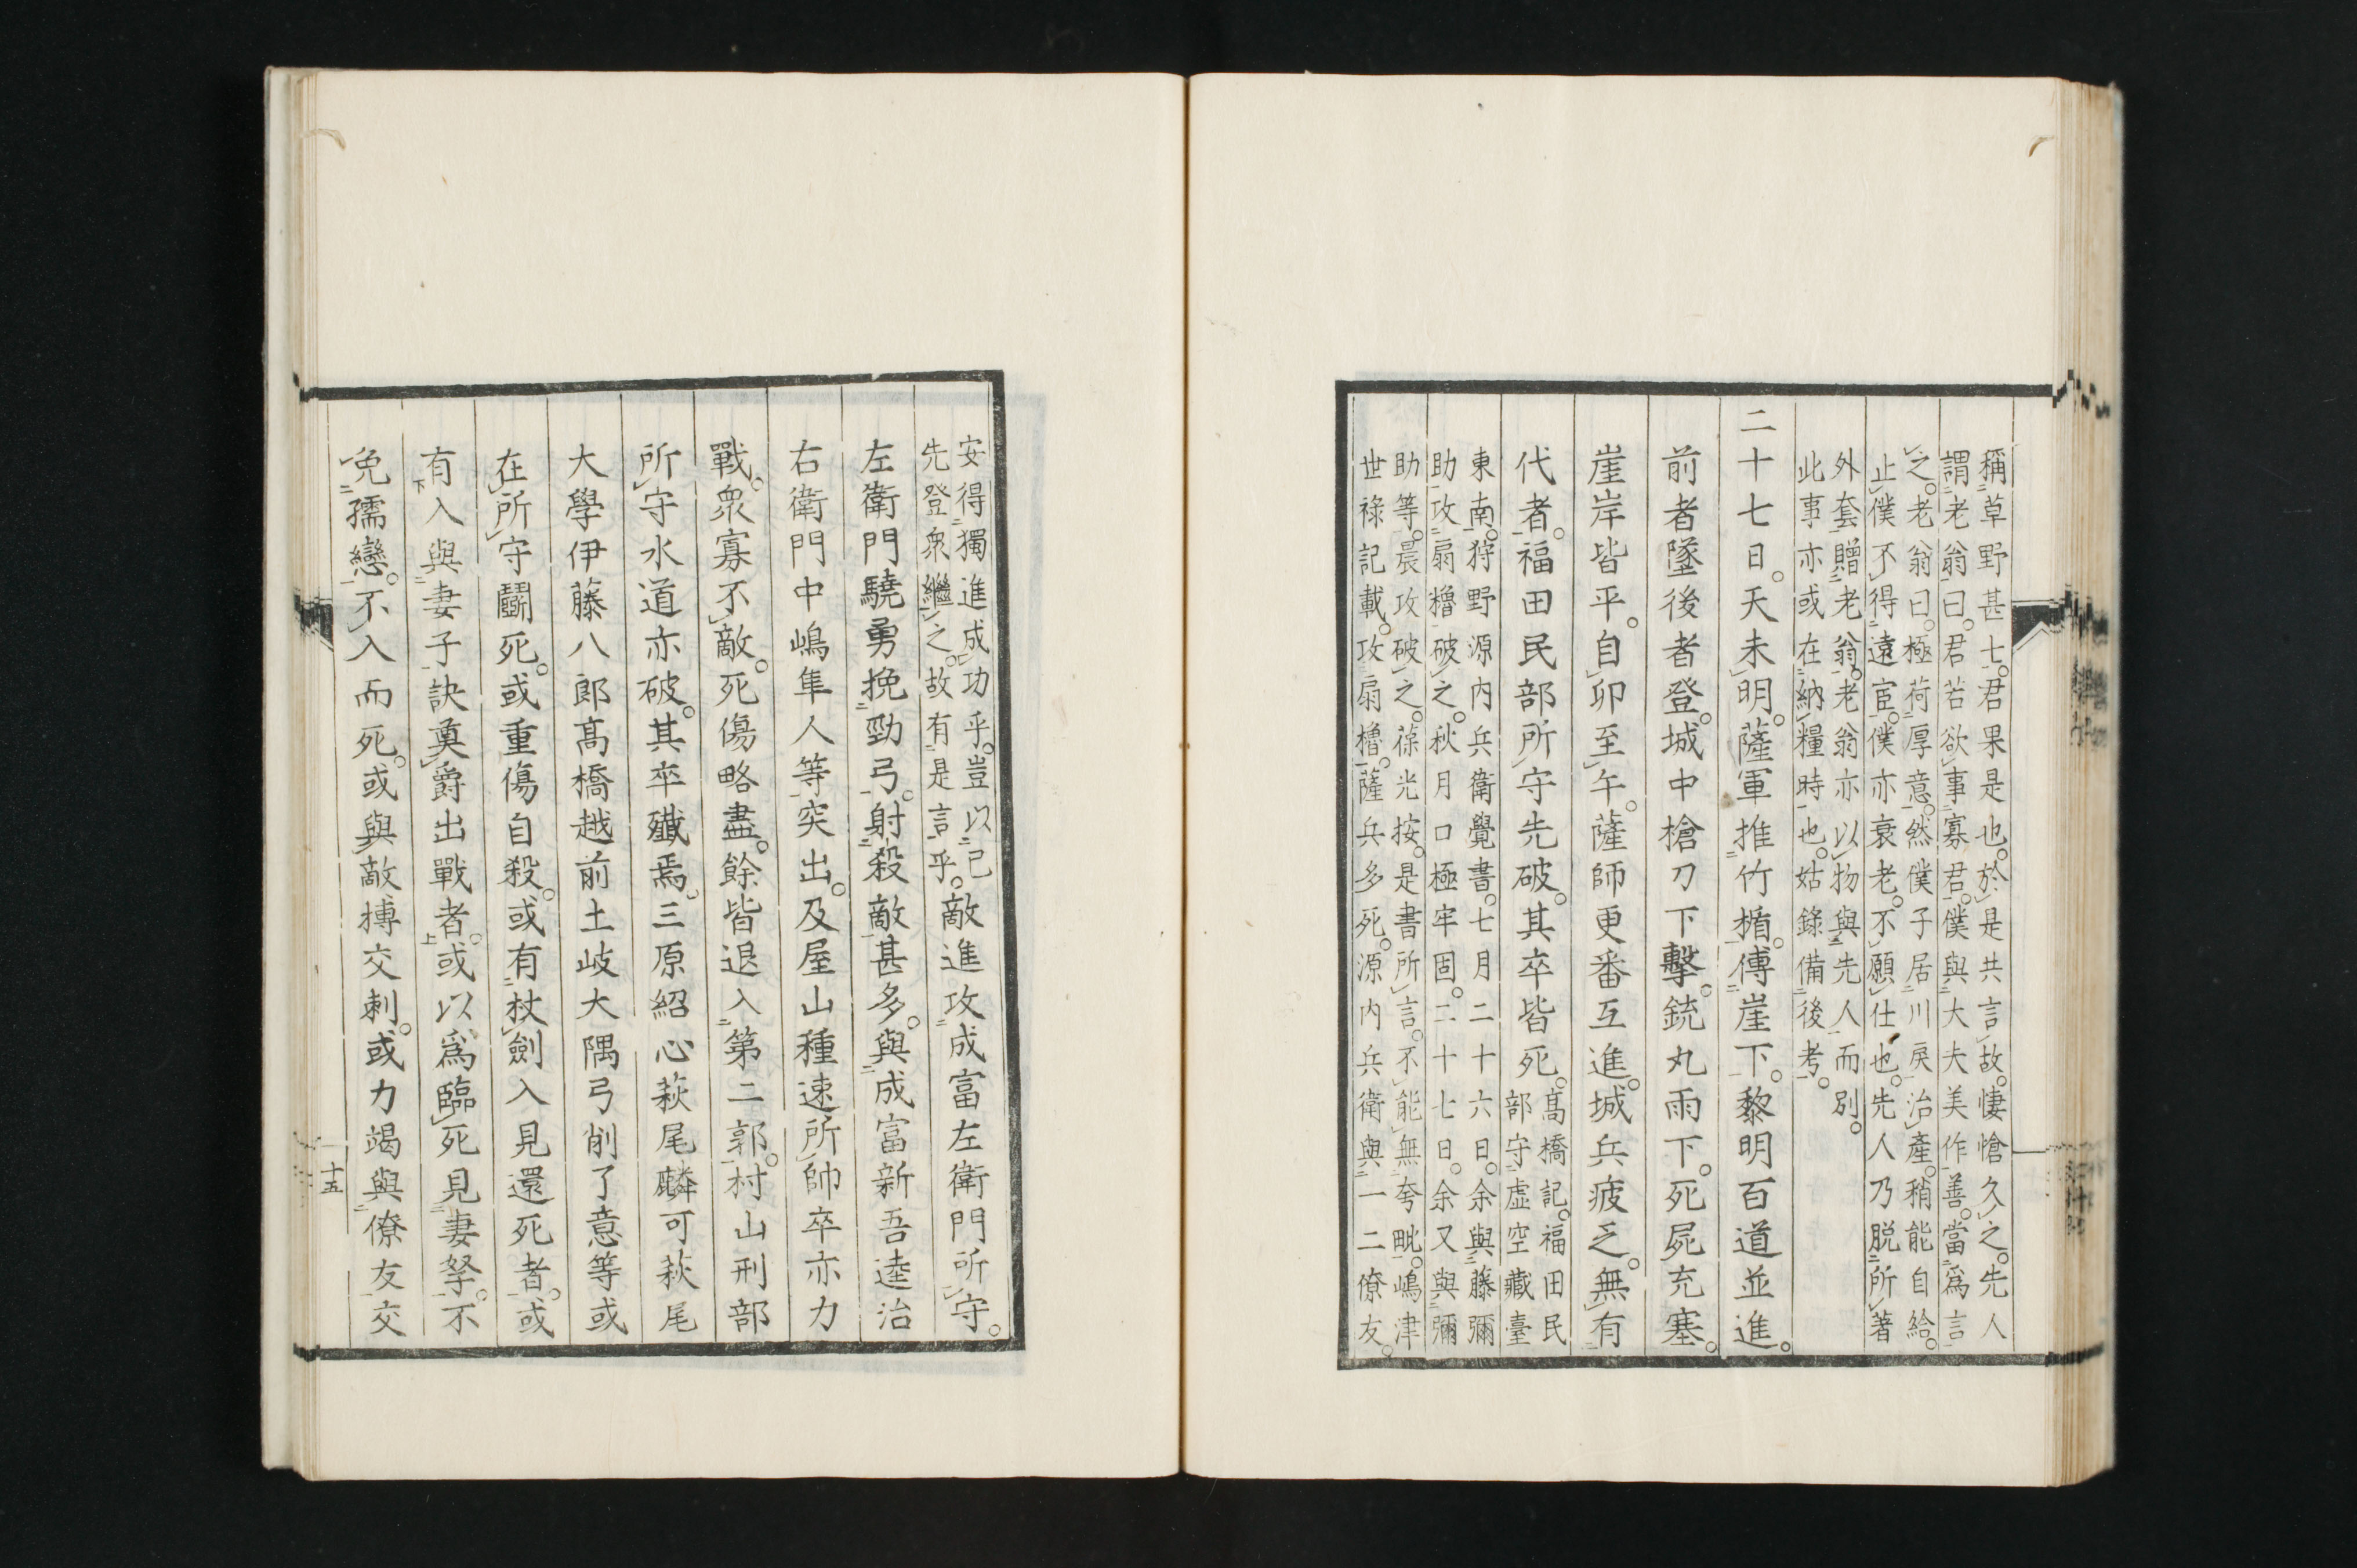 稱草野甚七。君果是也。於是共言故。悽愴久之。先人
謂老翁曰。君若欲事寡君。僕與大夫美作善。當爲言
之。老翁曰。極荷厚意。然僕子居川戾治產。稍能自給。
止僕不得遠宦。僕亦衰老。不願仕也。先人乃脫所著
外套贈老翁。老翁亦以物與先人而別。
此事亦或在納糧時也。姑錄備後考。
二十七日。天未明。薩軍推竹楯。傅崖下。黎明百道並進。
前者墜後者登。城中槍刀下擊。銃丸雨下。死屍充塞。
崖岸皆平。自卯至午。薩師更番互進。城兵疲乏。無有
代者。福田民部所守先破。其卒皆死。高橋記。福田民
部守虛空藏臺
東南。狩野源内兵衛覺書。七月二十六日。余與藤彌
助攻扇櫓破之。秋月口極牢固。二十七日。余又與彌
助等。晨攻破之。葆光按。是書所言。不能無夸毗。嶋津
世祿記載。攻扇櫓。薩兵多死。源内兵衛與一二僚友。
安得獨進成功乎。豈以己
先登衆繼之。故有是言乎。敵進攻成富左衛門所守。
左衛門驍勇挽勁弓。射殺敵甚多。與成富新吾逵治
右衛門中嶋隼人等突出。及屋山種速所帥卒亦力
戰。衆寡不敵。死傷略盡。餘皆退入第二郭。村山刑部
所守水道亦破。其卒殲焉。三原紹心萩尾麟可萩尾
大學伊藤八郎高橋越前土岐大隅弓削了意等或
在所守鬭死。或重傷自殺。或有杖劍入見還死者。或
有入與妻子訣奠爵出戰者。或以爲臨死見妻孥。不
免孺戀。不入而死。或與敵搏交刺。或力竭與僚友交
十五